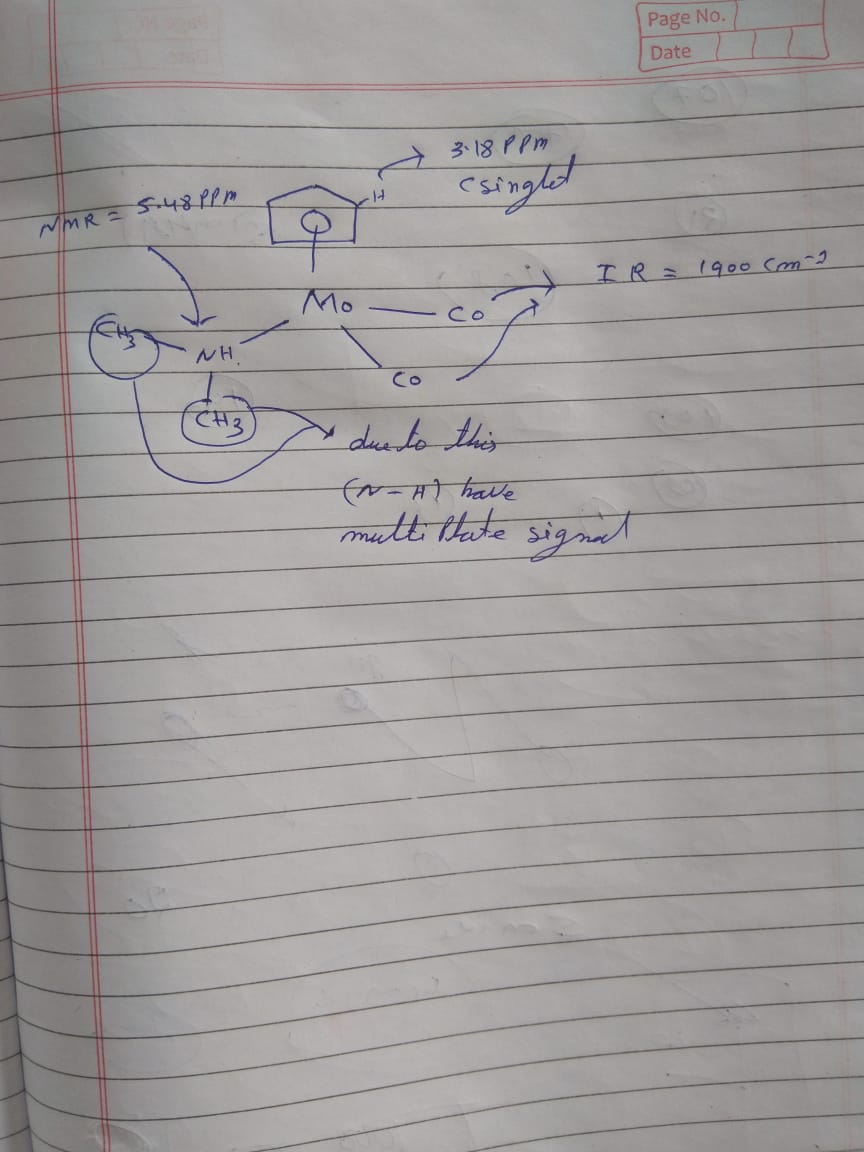 Page No.
Date
3.18 PPM
(singlet
NMR = 5.48 PPM
H
IR = 1900 cm-1
Mo
CO
CH3
NH
CO
CH3
due to this
(N-H) have
multi Plate signal